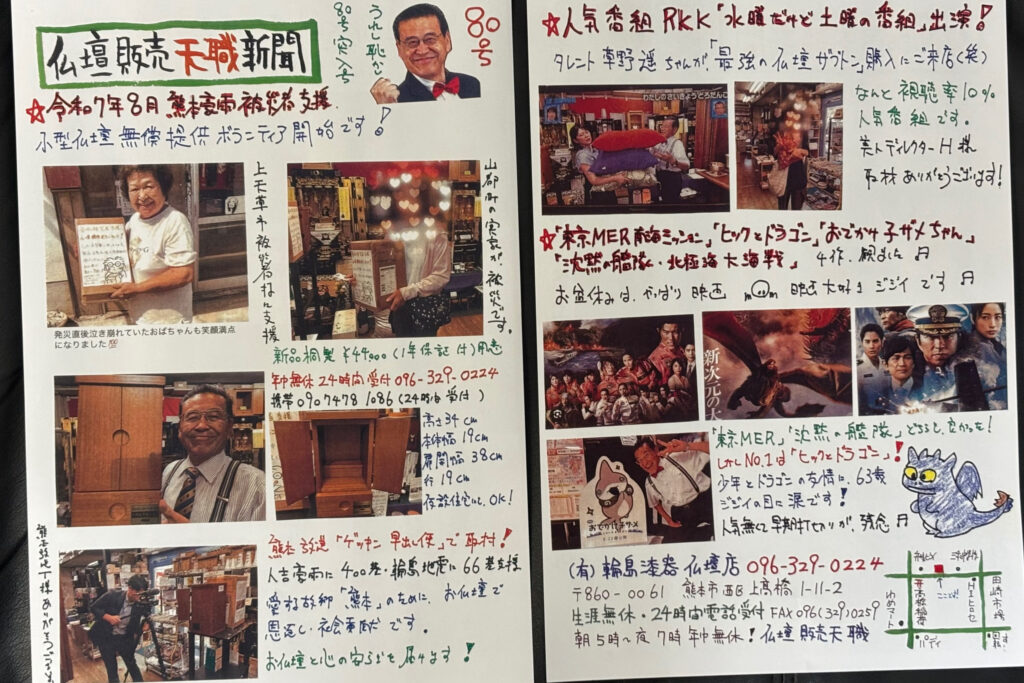 仏壇販売天職新聞
80号突入号
うれし恥かし
80号
☆令和7年8月 熊本豪雨被災者支援
小型仏壇無償提供ボランティア開始です!
上天草市被災者様に支援
山都町の実家が被災です。
発災直後泣き崩れていたおばちゃんも笑顔満点
になりました💯
新品桐製 ¥44000(1年保証付)用意
年中無休24時間受付 096-329-0224
携帯 090 7478 1086 (24時間受付)
高さ34cm
本体幅19cm
展開幅38cm
奥行19cm
仮設住宅にも、OK!
熊本放送「ゲッキン早出し便」で取材!
人吉豪雨に400基・輪島地震に66基支援
愛する故郷「熊本」のために、お仏壇で
恩返し・社会奉仕です。
お仏壇と心の安らぎを届けます!
☆人気番組RKK「水曜だけど土曜の番組」出演!
タレント草野遥ちゃんが、「最強の仏壇ザブトン」購入にご来店(笑)
わたしのさいきょうどろだんご
なんと視聴率10%
人気番組です。
美人ディレクターH様
取材ありがとうございます!
☆「東京MER 南海ミッション」「ヒックとドラゴン」「おでかけ子ザメちゃん」
「沈黙の艦隊・北極海大海戦」 4作、観ました♬
お盆休みは、やっぱり映画 m(__)m 映画大好きジジイです♬
新次元の大
「東京MER」「沈黙の艦隊」どちらも、良かった!
しかしNo.1は「ヒックとドラゴン」!
少年とドラゴンの友情に、63歳
ジジイの目に涙です!
人気無くて早期打ちきりが、残念♬
おでかけ子ザメ
(有)輪島漆器仏壇店 096-329-0224
〒860-0061 熊本市西区上高橋1-11-2
生涯無休・24時間電話受付 FAX096(329)0259
朝5時~夜7時 年中無休! 仏壇販売天職
ここ!
田崎市場
ゆめマート